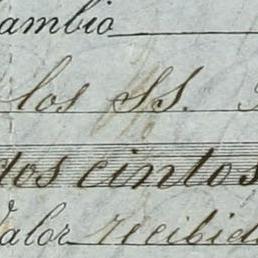 ambio
los SS.
tos cintos
Valor recibid